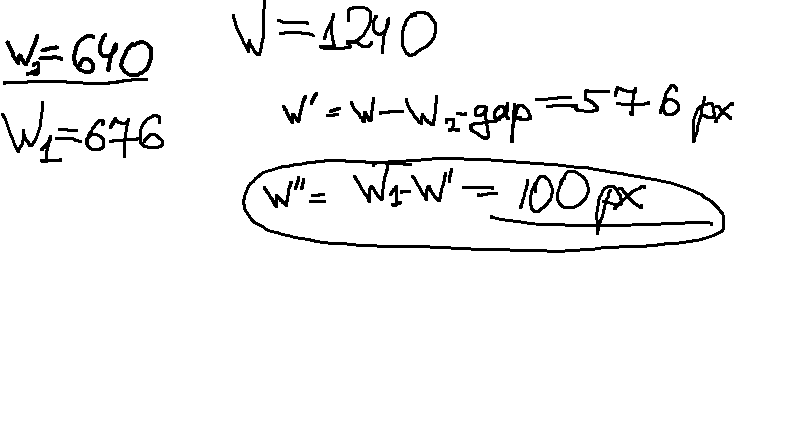 W₂=640
W=1240
W₁=676
W' = W-W₂-gap=576 px
W''= W₁-W' = 100 px